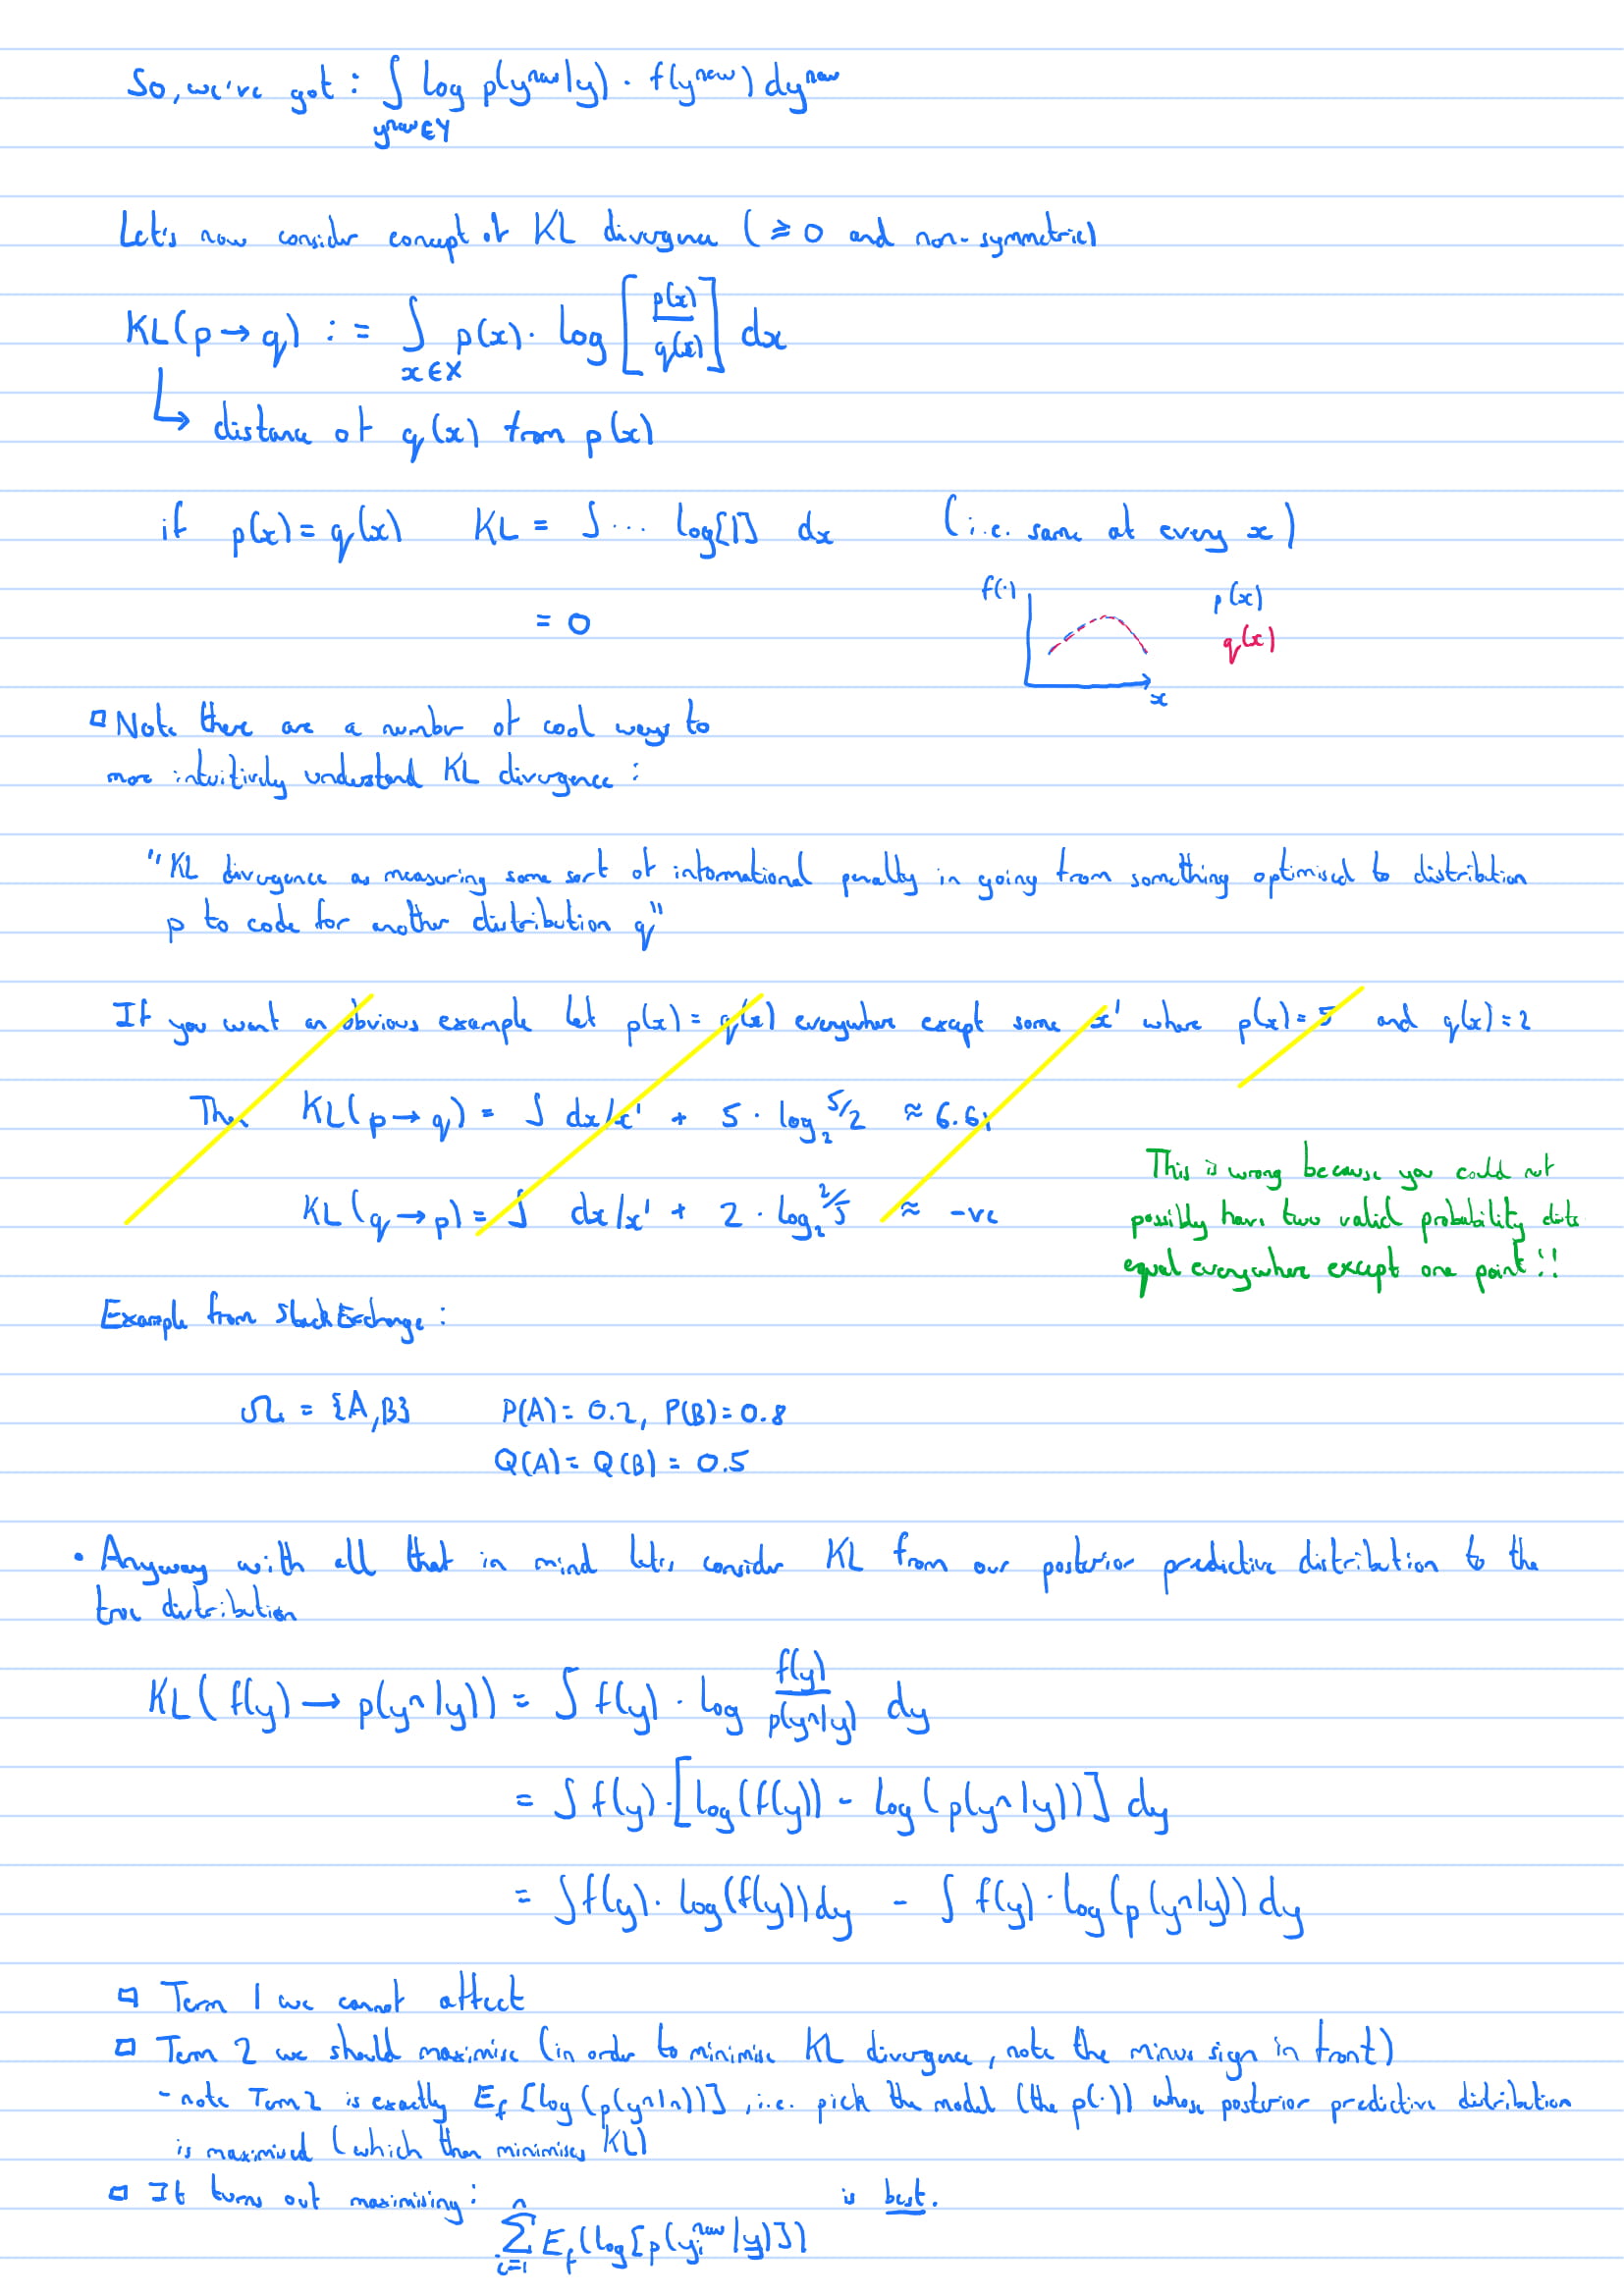 So, we've got : ∫ log p(y^new|y) · f(y^new) dy^new
y^new ∈ Y
Let's now consider concept of KL divergence ( ≥ 0 and non-symmetric)
KL(p → q) := ∫ p(x) · log [ p(x) / q(x) ] dx
x ∈ X
↳ distance of q(x) from p(x)
if p(x) = q(x) KL = ∫ ... log[1] dx (i.e. same at every x)
= 0
f(·) p(x)
q(x)
x
Note there are a number of cool ways to
more intuitively understand KL divergence :
"KL divergence as measuring some sort of informational penalty in going from something optimised to distribution
p to code for another distribution q"
If you want an obvious example let p(x) = q(x) everywhere except some x' where p(x) = 5 and q(x) = 2
Then KL(p → q) = ∫ dx/x' + 5 · log₂ 5/2 ≈ 6.61
KL(q → p) = ∫ dx/x' + 2 · log₂ 2/5 ≈ -ve
This is wrong because you could not
possibly have two valid probability dists
equal everywhere except one point!!
Example from StackExchange :
Ω = {A,B} P(A) = 0.2, P(B) = 0.8
Q(A) = Q(B) = 0.5
• Anyway with all that in mind let's consider KL from our posterior predictive distribution to the
true distribution
KL( f(y) → p(y^n|y)) = ∫ f(y) · log f(y) / p(y^n|y) dy
= ∫ f(y) · [log(f(y)) - log(p(y^n|y))] dy
= ∫ f(y) · log(f(y)) dy - ∫ f(y) · log(p(y^n|y)) dy
Term 1 we cannot affect
Term 2 we should maximise (in order to minimise KL divergence, note the minus sign in front)
- note Term 2 is exactly E_f [log(p(y^n|n))], i.e. pick the model (the p(·)) whose posterior predictive distribution
is maximised (which then minimises KL)
It turns out maximising : ∑_{i=1}^{n} E_f(log[p(y_i^new|y)]) is best.